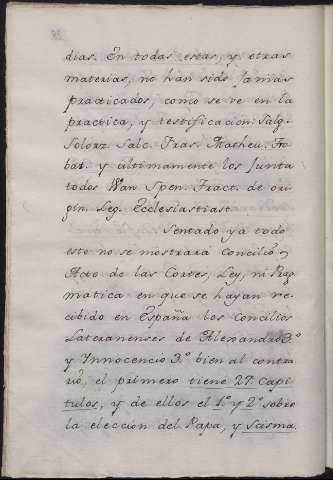 dias. En todas estas, y otras
materias, no han sido jamas
practicados, como se ve en la
practica, y testificacion Salg.
Solorz. Salc. Fras. Matheu. Fro
bat. y ultimamente los Junta
todos Wan Spen. Fract. de ori
gin. Leg. Ecclesiastiast
Sentado ya todo
esto no se mostrará Concilio, y
Acto de las Cortes, Ley, ni Prag
matica en que se hayan re
cibido en España los Concilios
Lateranenses de Alexandro 3.º
y Innocencio 3.º bien al contra
rio, el primero tiene 27. Capi
tulos, y de ellos el 1.º y 2.º sobre
la eleccion del Papa, y Scisma.